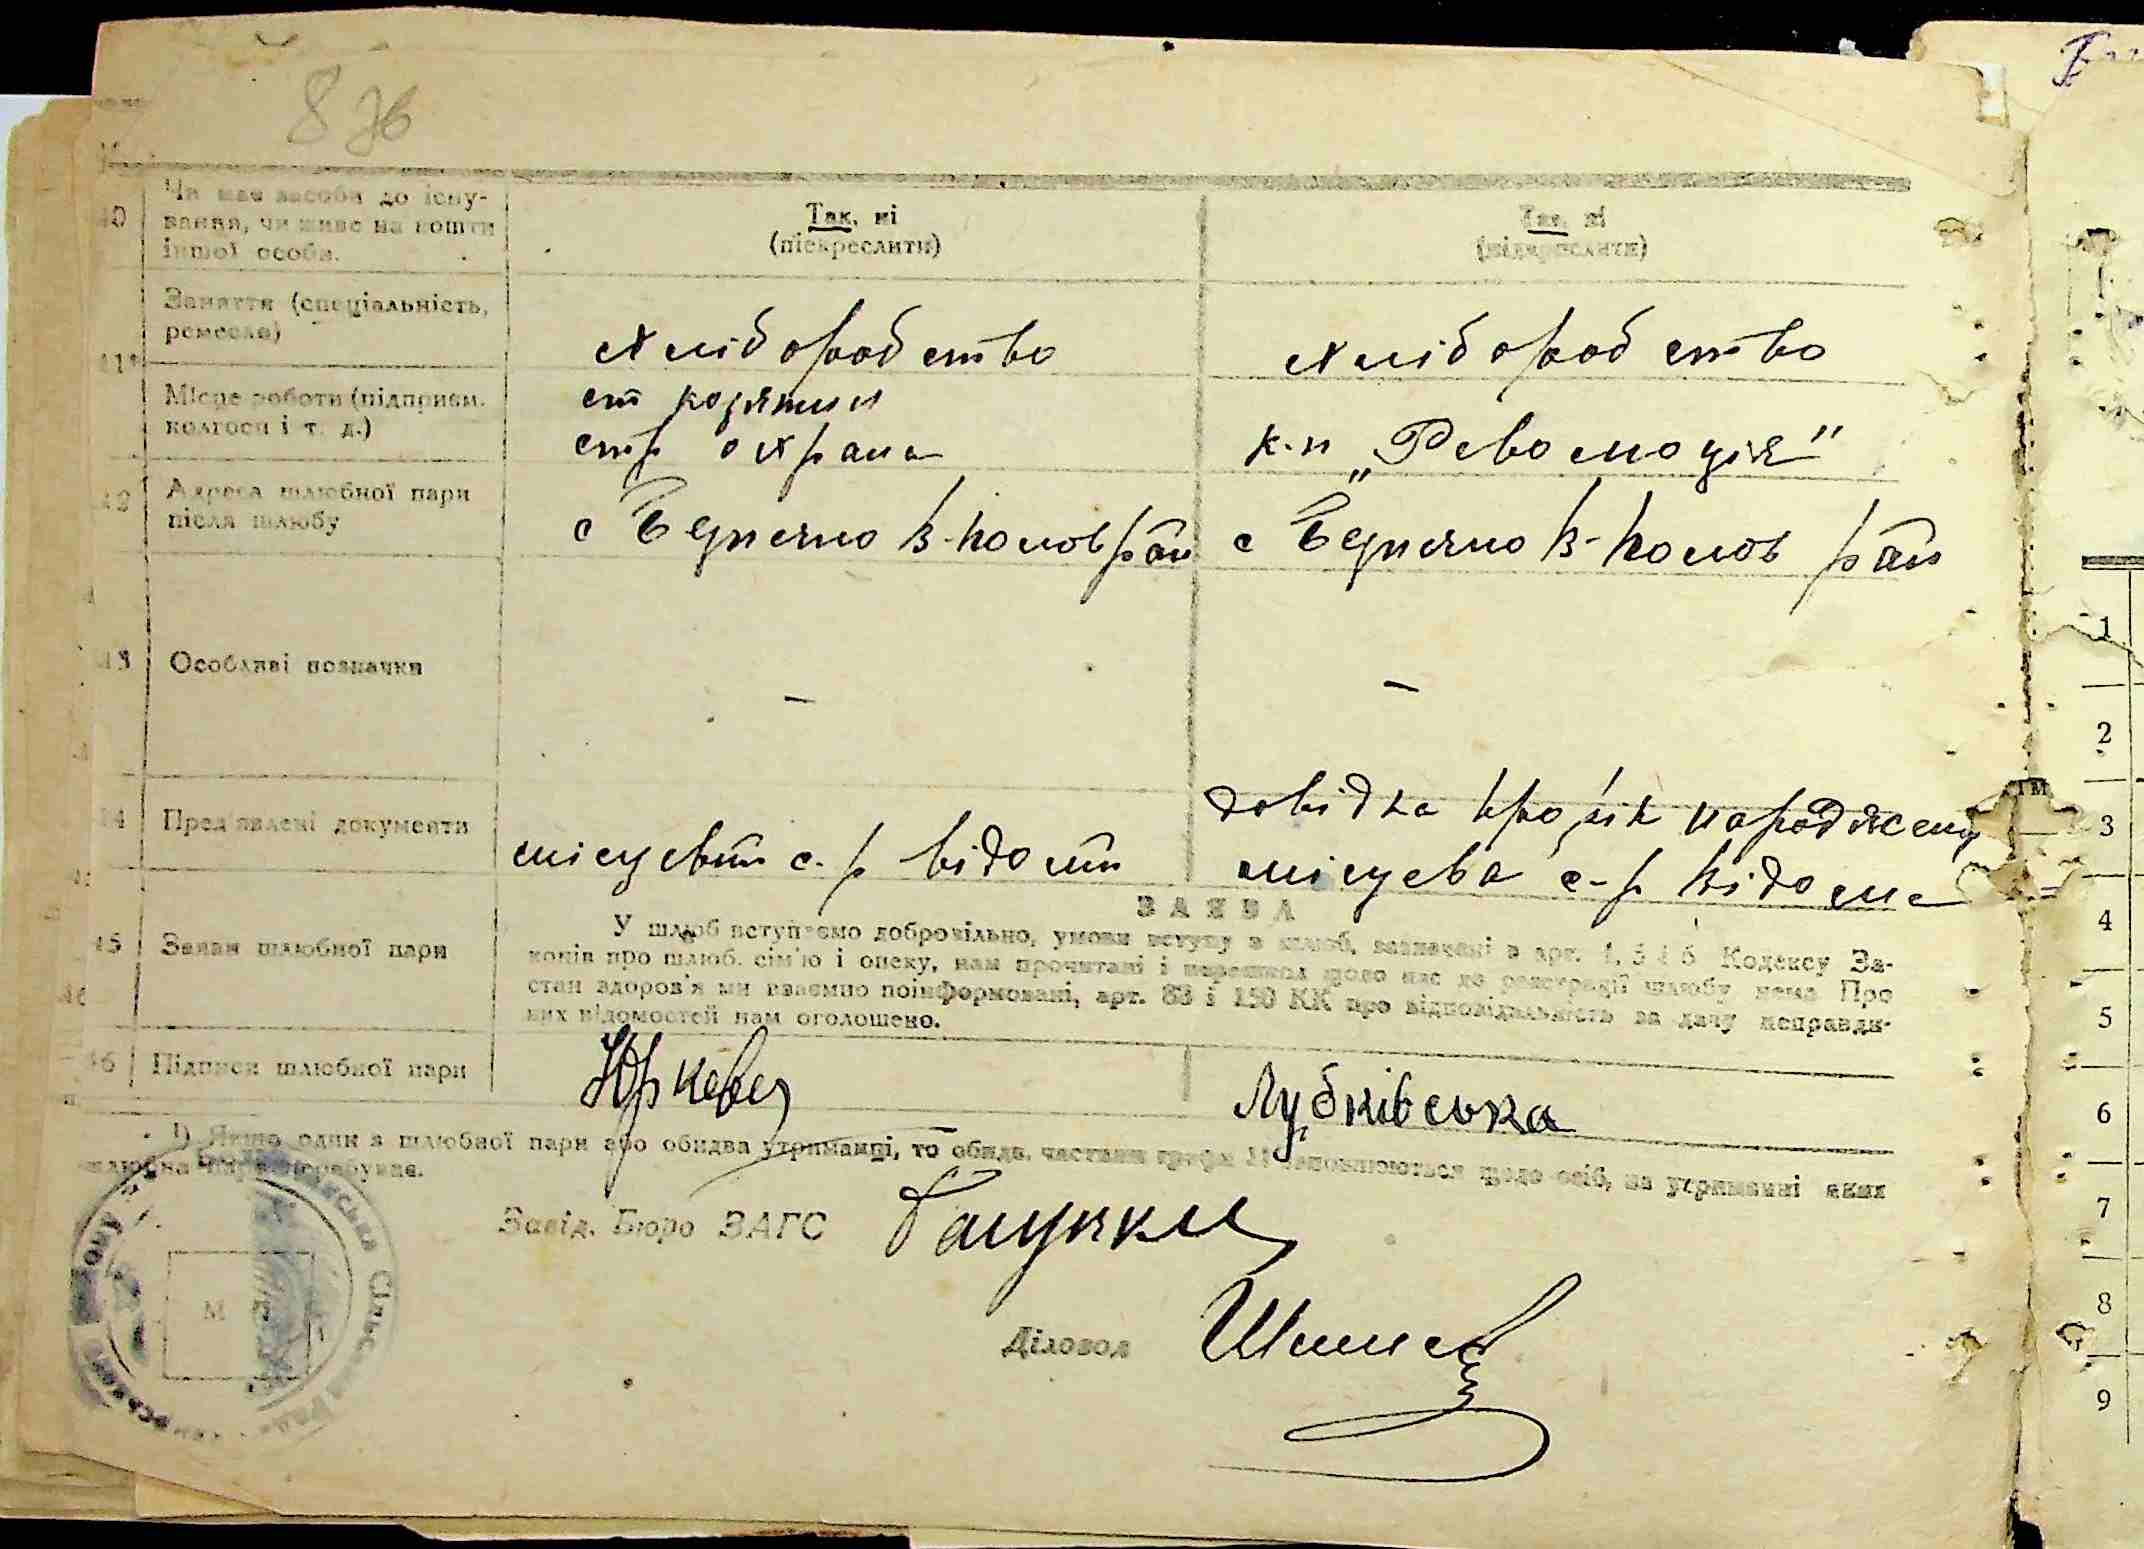 8 зв
10 Чи має засоби до існу-
вання, чи живе на кошти
іншої особи.
Так, ні
(підкреслити)
Так, ні
(підкреслити)
11 Заняття (спеціальність,
ремесло)
хліборобство
хліборобство
Місце роботи (підприєм.
колгосп і т. д.)
ст Козятин
стр охрана
к-п „Революція"
12 Адреса шлюбної пари
після шлюбу
с
рай
с
рай
13 Особливі позначки
–
–
14 Пред'явлені документи
місцевій с-р відомий
довідка про рік народження
місцева с-р відома
15 Заява шлюбної пари
ЗАЯВА
У шлюб вступаємо добровільно, умови вступу в шлюб, зазначені в арт. 4, 5 і 6 Кодексу За-
конів про шлюб. сім'ю і опеку, нам прочитані і перешкод щодо нас до реєстрації шлюбу нема Про
стан здоров'я ми взаємно поінформовані, арт. 83 і 150 КК про відповідальність за дачу неправди-
вих відомостей нам оголошено.
16 Підписи шлюбної пари
Юркевич
Лубківська
1) Якщо один з шлюбної пари або обидва утриманці, то обидв. частини графи 11 заповнюються щодо осіб, на утриманні яких
шлюбна пара перебуває.
Завід. Бюро ЗАГС
Діловод
Сільська Рада
М
1
2
3
4
5
6
7
8
9